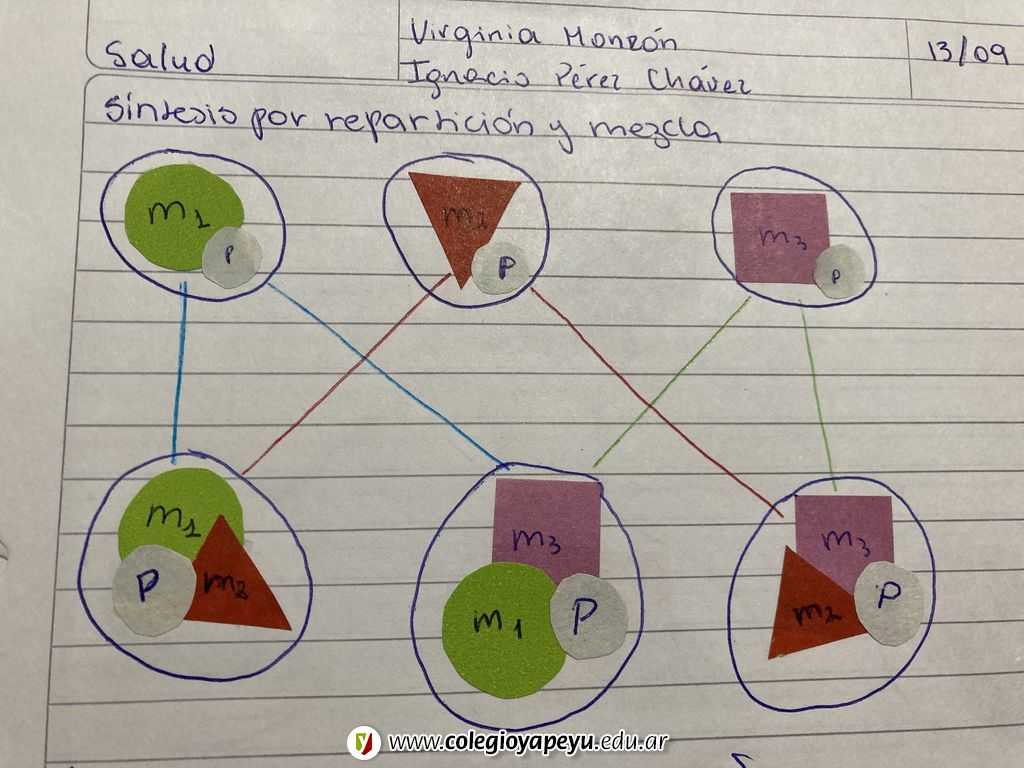 Salud
Virginia Monzón
Ignacio Pérez Chávez
13/09
Síntesis por repartición y mezcla
m1
P
m2
P
m3
P
m1
P
m2
m3
m1
P
m3
m2
P
www.colegioyapeyu.edu.ar